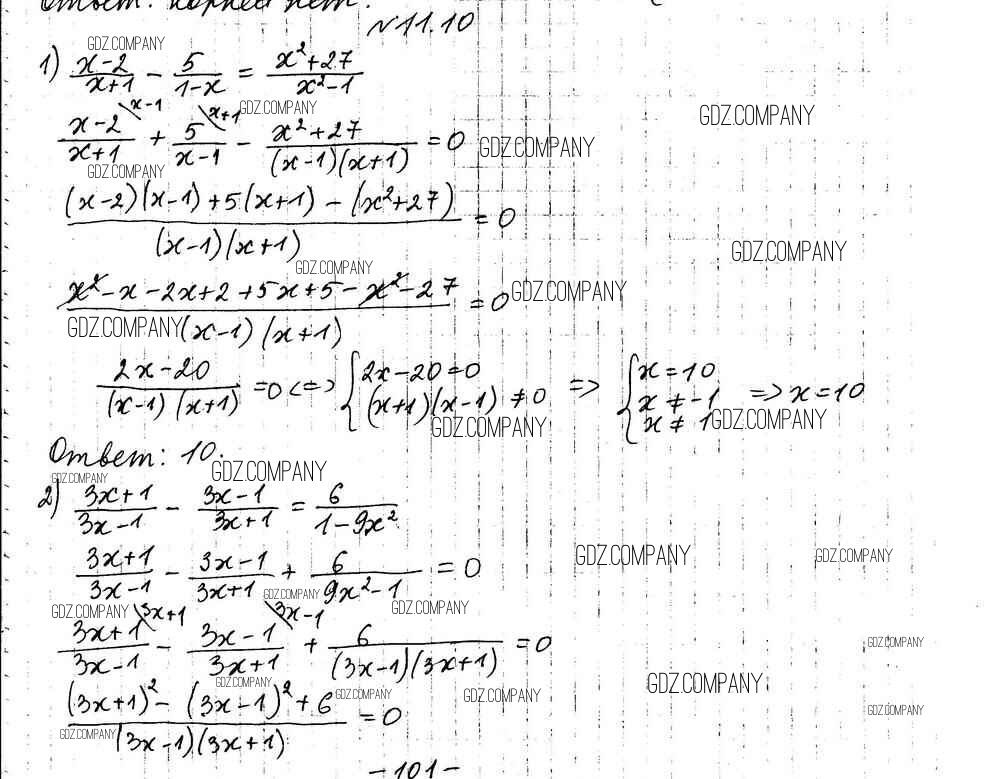 Ответ: корней нет.
№11.10
GDZ.COMPANY
1) (x-2)/(x+1) - 5/(1-x) = (x²+27)/(x²-1)
x-1 x+1 GDZ.COMPANY GDZ.COMPANY
(x-2)/(x+1) + 5/(x-1) - (x²+27)/((x-1)(x+1)) = 0 GDZ.COMPANY
GDZ.COMPANY
((x-2)(x-1)+5(x+1)-(x²+27))/((x-1)(x+1)) = 0
GDZ.COMPANY
GDZ.COMPANY
(x²-x-2x+2+5x+5-x²-27)/((x-1)(x+1)) = 0 GDZ.COMPANY
GDZ.COMPANY
(2x-20)/((x-1)(x+1)) = 0 <=> { 2x-20=0 (x+1)(x-1)≠0 => { x=10 x≠-1 x≠1 => x=10
GDZ.COMPANY GDZ.COMPANY
Ответ: 10.
GDZ.COMPANY GDZ.COMPANY
2) (3x+1)/(3x-1) - (3x-1)/(3x+1) = 6/(1-9x²)
(3x+1)/(3x-1) - (3x-1)/(3x+1) + 6/(9x²-1) = 0 GDZ.COMPANY GDZ.COMPANY
GDZ.COMPANY GDZ.COMPANY GDZ.COMPANY
3x+1 3x-1
(3x+1)/(3x-1) - (3x-1)/(3x+1) + 6/((3x-1)(3x+1)) = 0 GDZ.COMPANY
GDZ.COMPANY GDZ.COMPANY GDZ.COMPANY GDZ.COMPANY
((3x+1)²-(3x-1)²+6)/((3x-1)(3x+1)) = 0 GDZ.COMPANY
GDZ.COMPANY
-101-